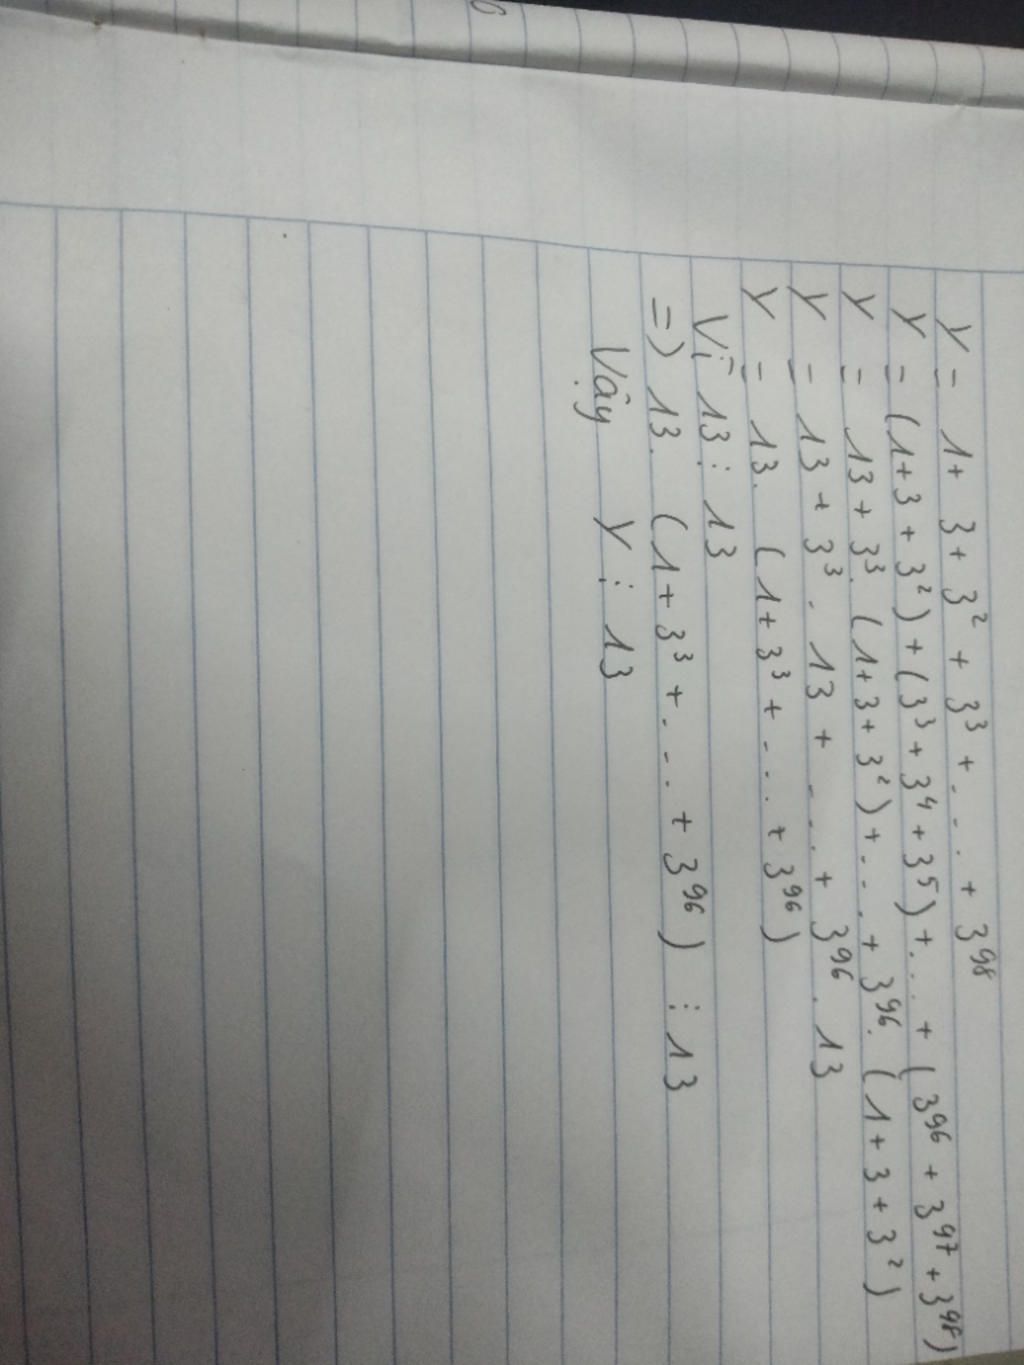 Y = 1 + 3 + 3² + 3³ + .... + 3⁹⁸
Y = (1 + 3 + 3²) + (3³ + 3⁴ + 3⁵) + ... + (3⁹⁶ + 3⁹⁷ + 3⁹⁸)
Y = 13 + 3³. (1 + 3 + 3²) + ... + 3⁹⁶. (1 + 3 + 3²)
Y = 13 + 3³ . 13 + .... + 3⁹⁶ . 13
Y = 13. (1 + 3³ + .... + 3⁹⁶)
Vì 13 ⋮ 13
=) 13. (1 + 3³ + .... + 3⁹⁶) ⋮ 13
Vậy Y ⋮ 13